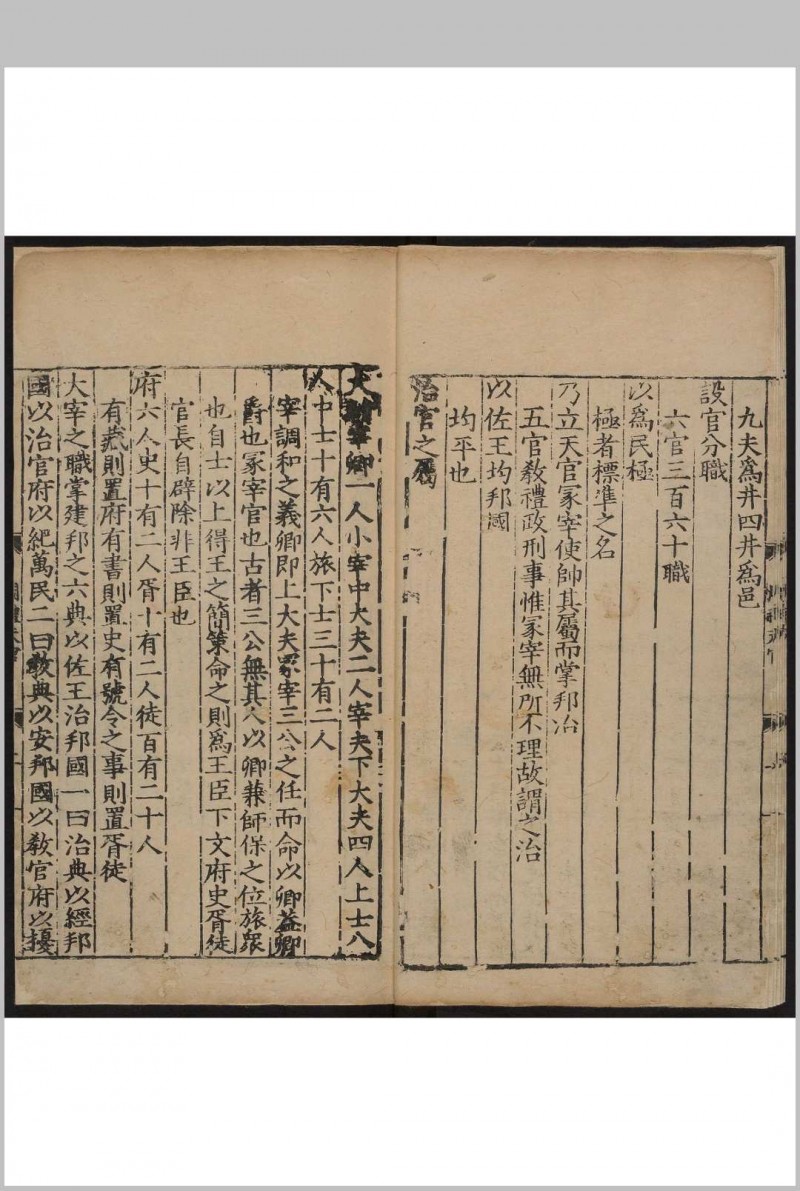 九夫爲井四井爲邑
設官分職
六官三百六十職
以爲民極
極者標準之名
乃立天官冢宰使帥其屬而掌邦治
五官敎禮政刑事惟冢宰無所不理故謂之治
以佐王均邦國
均平也
治官之屬
大宰卿一人小宰中大夫二人宰夫下大夫四人上士八
人中士十有六人旅下士三十有二人
宰調和之義卿即上大夫冢宰三公之任而命以卿蓋卿
爵也冢宰官也古者三公無其人以卿兼師保之位旅眾
也自士以上得王之簡策命之則爲王臣下文府史胥徒
官長自辟除非王臣也
府六人史十有二人胥十有二人徒百有二十人
有藏則置府有書則置史有號令之事則置胥徒
大宰之職掌建邦之六典以佐王治邦國一曰治典以經邦
國以治官府以紀萬民二曰敎典以安邦國以敎官府以擾